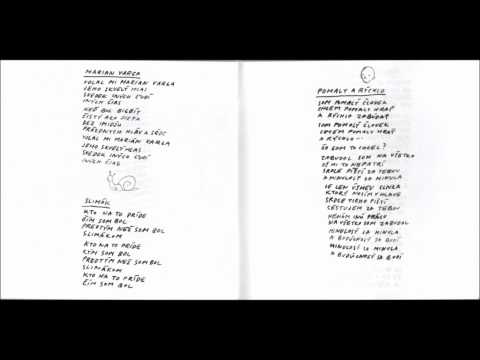 MARIAN VARGA
VOLAL MI MARIAN VARGA
JEHO SKVELÝ HLAS
SVEDOK INÝCH ĽUDÍ
INÝCH ČIAS
NEŽ BOL BIGBÍT
ČISTÝ AKO DIEŤA
BEZ IMIDŽU
PRÁZDNYCH HLÁV A SŔDC
VOLAL MI MARIÁN VARGA
JEHO SKVELÝ HLAS
SVEDOK INÝCH ĽUDÍ
INÝCH ČIAS
SLIMÁK
KTO NA TO PRÍDE
ČÍM SOM BOL
PREDTÝM NEŽ SOM BOL
SLIMÁKOM
KTO NA TO PRÍDE
KÝM SOM BOL
PREDTÝM NEŽ SOM BOL
SLIMÁKOM
KTO NA TO PRÍDE
ČÍM SOM BOL
POMALY A RÝCHLO
SOM POMALÝ ČLOVEK
CHCEM POMALY HRAŤ
A RÝCHLO ZABÚDAŤ
SOM POMALÝ ČLOVEK
CHCEM POMALY HRAŤ
A RÝCHLO...
ČO SOM TO CHCEL?
ZABUDOL SOM NA VŠETKO
ČO MI TO NEPATRÍ
SRDCE PIŠTÍ ZA TEBOU
A MINULOSŤ SA MINULA
JE LEN ÚSMEV
KTORÝ NOSÍM V HLAVE
SRDCE TICHO PIŠTÍ
CESTUJEM ZA TEBOU
NEMÁM INÚ PRÁCU
NA VŠETKO SOM ZABUDOL
MINULOSŤ SA MINULA
A BUDÚCNOSŤ SA BOJÍ
MINULOSŤ SA MINULA
A BUDÚCNOSŤ SA BOJÍ